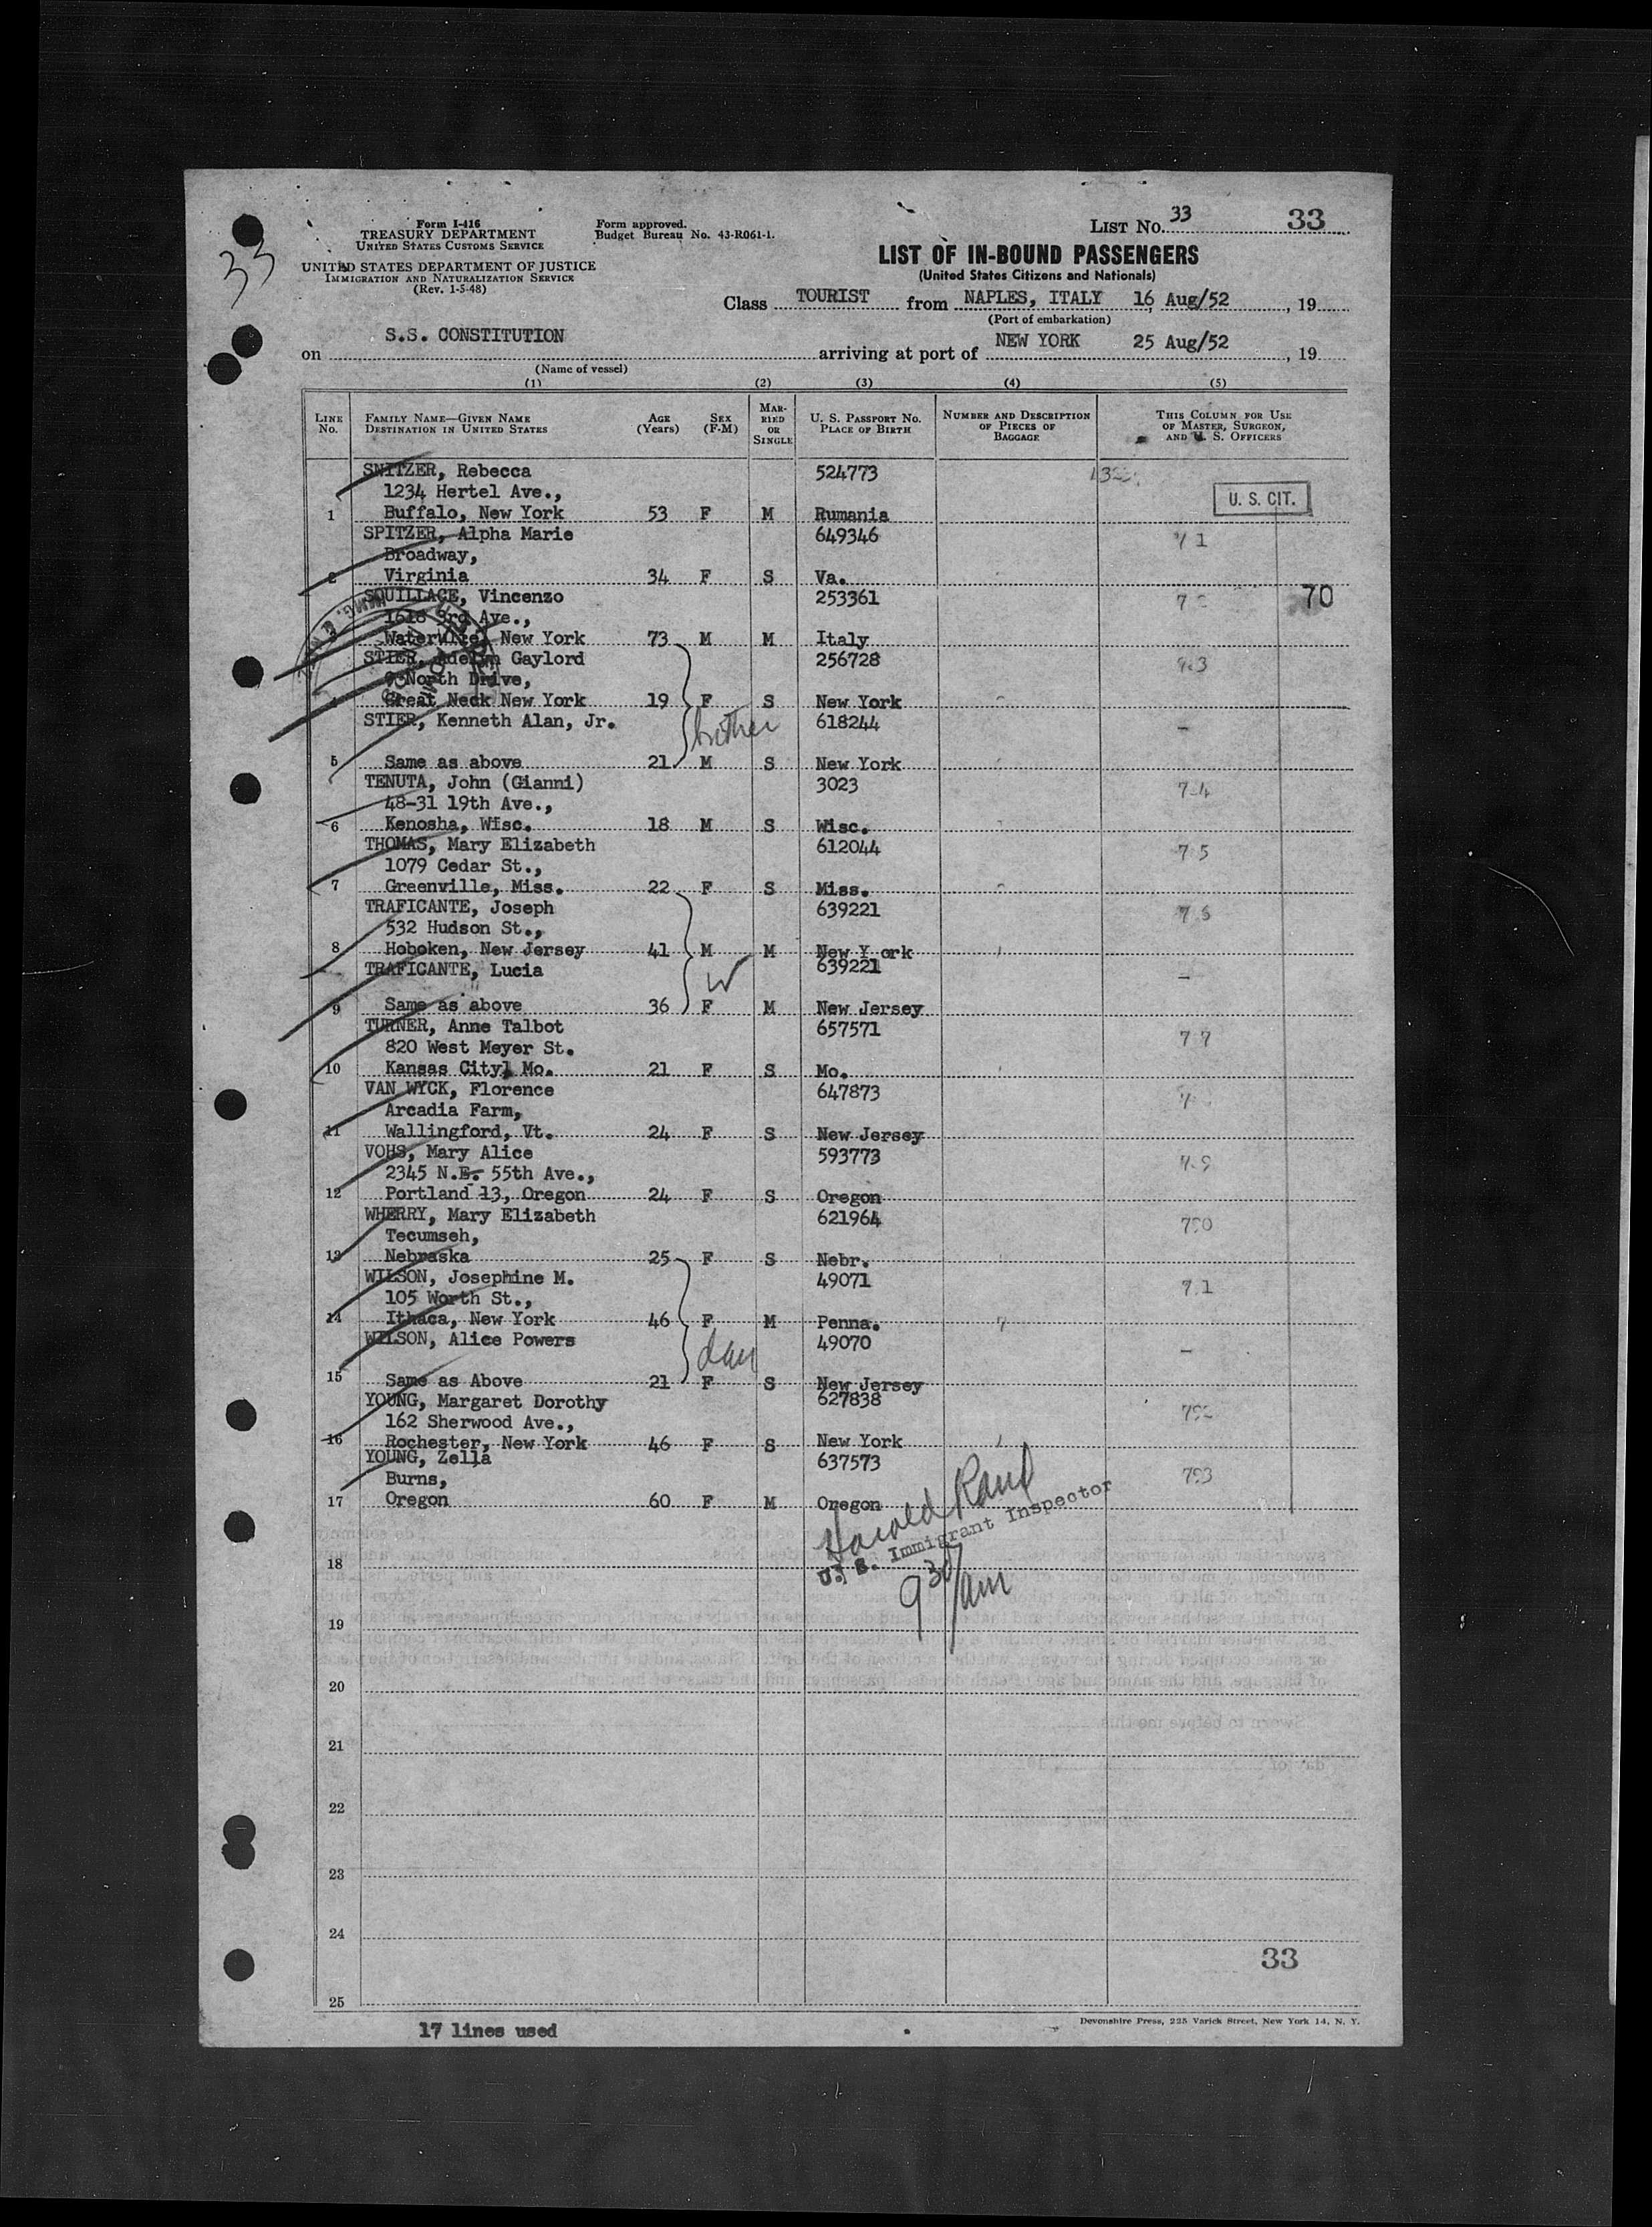 33
Form I-416
TREASURY DEPARTMENT
UNITED STATES CUSTOMS SERVICE
UNITED STATES DEPARTMENT OF JUSTICE
IMMIGRATION AND NATURALIZATION SERVICE
(Rev. 1-5-48)
Form approved.
Budget Bureau No. 43-R061-1.
LIST No. 33 33
LIST OF IN-BOUND PASSENGERS
(United States Citizens and Nationals)
Class TOURIST from NAPLES, ITALY 16 Aug/52, 19
(Port of embarkation)
on S.S. CONSTITUTION arriving at port of NEW YORK 25 Aug/52, 19
(Name of vessel)
(1) (2) (3) (4) (5)
LINE No. FAMILY NAME—GIVEN NAME DESTINATION IN UNITED STATES AGE (Years) SEX (F-M) MARRIED OR SINGLE U. S. PASSPORT No. PLACE OF BIRTH NUMBER AND DESCRIPTION OF PIECES OF BAGGAGE THIS COLUMN FOR USE OF MASTER, SURGEON, AND U. S. OFFICERS
SNITZER, Rebecca 524773
1234 Hertel Ave., U. S. CIT.
1 Buffalo, New York 53 F M Rumania
SPITZER, Alpha Marie 649346
Broadway,
2 Virginia 34 F S Va.
SQUILLACE, Vincenzo 253361 70
1618 3rd Ave.,
3 New York 73 M M Italy
STIER, Gaylord 256728
9 North Drive,
4 Great Neck New York 19 F S New York
STIER, Kenneth Alan, Jr. brother 618244 –
5 Same as above 21 M S New York
TENUTA, John (Gianni) 3023 74
48-31 19th Ave.,
6 Kenosha, Wisc. 18 M S Wisc.
THOMAS, Mary Elizabeth 612044 75
1079 Cedar St.,
7 Greenville, Miss. 22 F S Miss.
TRAFICANTE, Joseph 639221 76
532 Hudson St.,
8 Hoboken, New Jersey 41 M M New Y ork
TRAFICANTE, Lucia W 639221 –
9 Same as above 36 F M New Jersey
TURNER, Anne Talbot 657571 77
820 West Meyer St.
10 Kansas City, Mo. 21 F S Mo.
VAN WYCK, Florence 647873
Arcadia Farm,
11 Wallingford, Vt. 24 F S New Jersey
VOHS, Mary Alice 593773
2345 N.E. 55th Ave.,
12 Portland 13, Oregon 24 F S Oregon
WHERRY, Mary Elizabeth 621964
Tecumseh,
13 Nebraska 25 F S Nebr.
WILSON, Josephine M. 49071
105 Worth St.,
14 Ithaca, New York 46 F M Penna.
WILSON, Alice Powers dau 49070 –
15 Same as Above 21 F S New Jersey
YOUNG, Margaret Dorothy 627838
162 Sherwood Ave.,
16 Rochester, New York 46 F S New York
YOUNG, Zella 637573 793
Burns,
17 Oregon 60 F M Oregon
Harold Rand
U. S. Immigrant Inspector
18
930/am
19
20
21
22
23
24
33
25
17 lines used
Devonshire Press, 225 Varick Street, New York 14, N. Y.